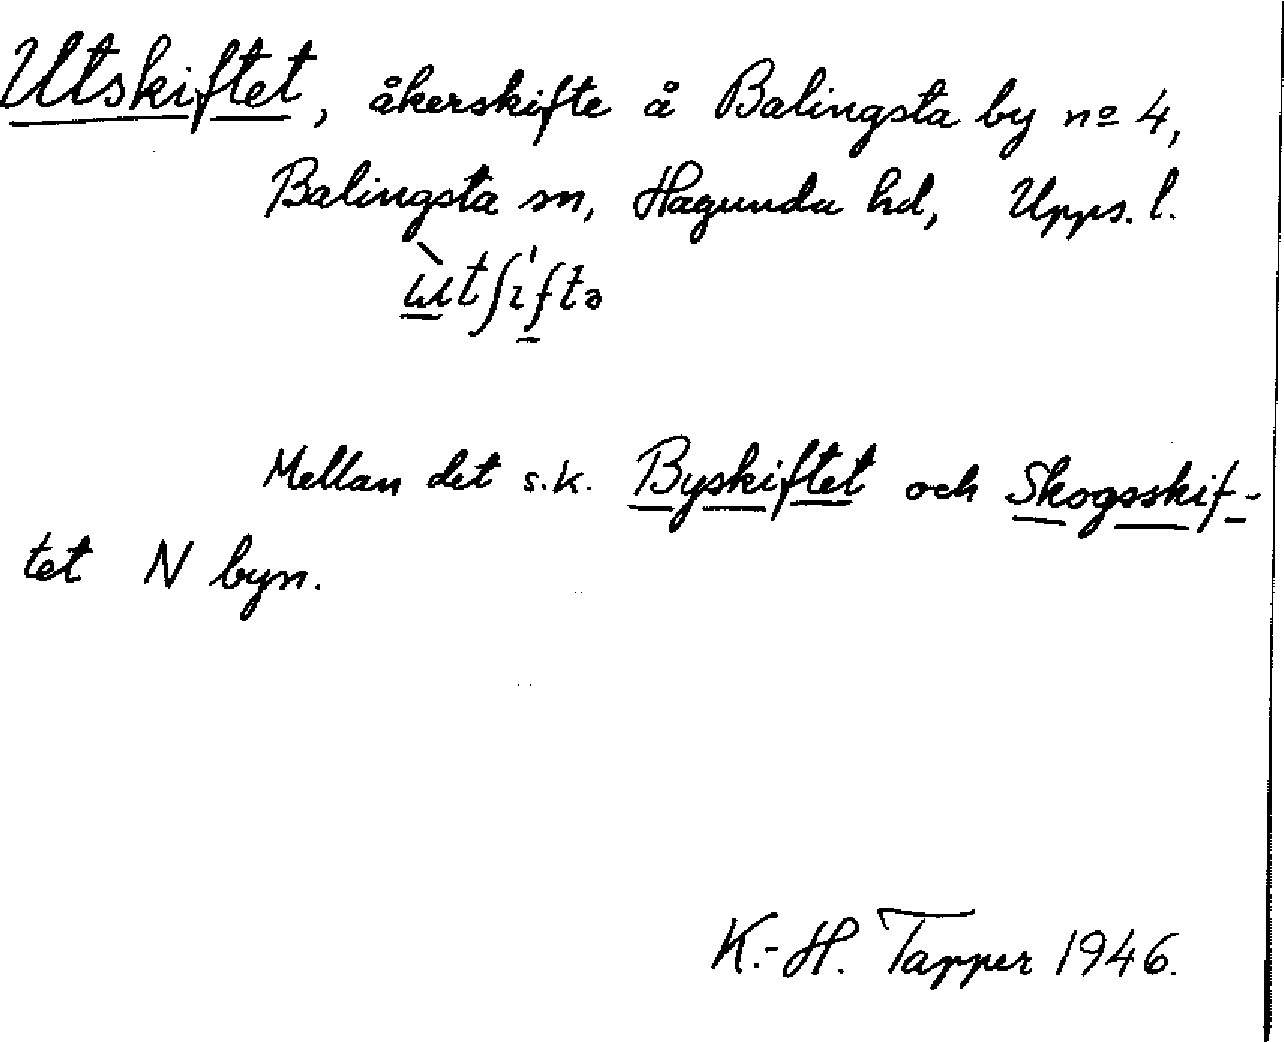 Utskiftet, åkerskifte å Balingsta by nº 4,
Balingsta sn, Hagunda hd, Upps. l.
Mellan det s.k. Byskiftet och Skogsskif-
tet N byn.
K.-H. Tapper 1946.